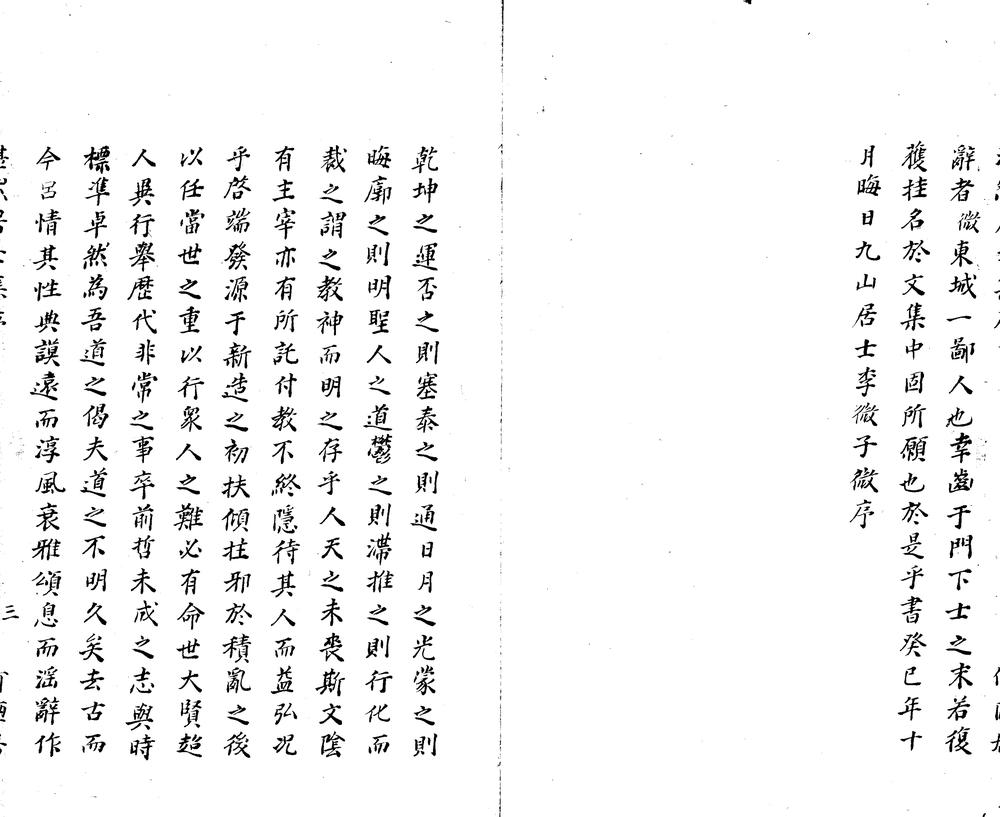 辭者微東城一鄙人也幸齒于門下士之末若復
獲挂名於文集中固所願也於是乎書癸巳年十
月晦日九山居士李微子微序
乾坤之運否之則塞泰之則通日月之光蒙之則
晦廓之則明聖人之道鬱之則滯推之則行化而
裁之謂之教神而明之存乎人天之未喪斯文陰
有主宰亦有所託付教不終隱待其人而益弘况
乎啓端發源于新造之初扶傾拄邪於積亂之後
以任當世之重以行衆人之難必有命世大賢超
人異行舉歷代非常之事卒前哲未成之志與時
標準卓然為吾道之倡夫道之不明久矣去古而
今呂情其性典謨遠而淳風衰雅頌息而滛辭作
三